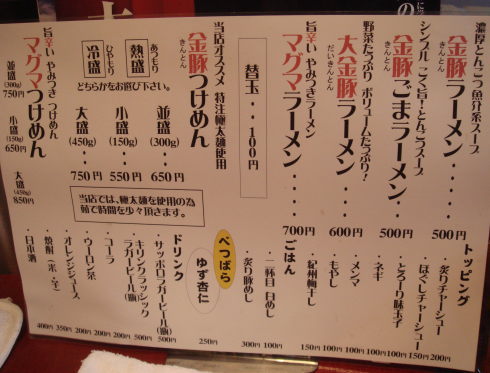 濃厚とんこつ魚介系スープ
金豚ラーメン・・・500円
きんとん
シンプル・こく旨!とんこつスープ
金豚ごまラーメン・・500円
きんとん
野菜たっぷり ボリュームたっぷり!
大金豚ラーメン・・・600円
だいきんとん
旨辛い やみつきラーメン
マグマラーメン・・・700円
替玉・・・100円
当店オススメ 特注極太麺使用
金豚つけめん
きんとん
熱盛
あつもり
冷盛
ひやもり
どちらかをお選び下さい。
並盛(300g)・・650円
小盛(150g)・・550円
大盛(450g)・・750円
当店では、極太麺を使用の為
茹で時間を少々頂きます。
旨辛い やみつき つけめん
マグマつけめん
並盛(300g)750円
小盛(150g)650円
大盛(450g)850円
トッピング
・炙りチャーシュー 200円
・ほぐしチャーシュー 150円
・とろーり味玉子 100円
・ネギ 100円
・メンマ 100円
・もやし 100円
・紀州梅干し 100円
ごはん
・二杯目 白めし 100円
・炙り豚めし 300円
べつばら
ゆず杏仁 250円
ドリンク
・サッポロラガービール(瓶) 500円
・キリンクラッシックラガービール(瓶) 500円
・コーラ 200円
・ウーロン茶 200円
・オレンジジュース 200円
・焼酎(米・芋) 350円
・日本酒 400円